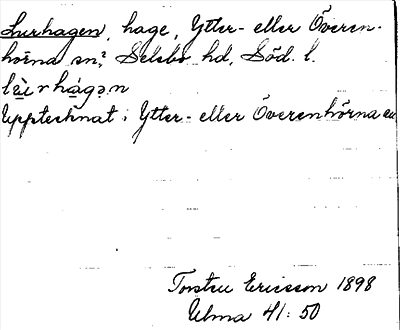 Lurhagen, hage, Ytter- eller Överen-
hörna sn, Selebo hd, Söd. l.
Upptecknat i Ytter- eller Överenhörna en
Torsten Ericsson 1898
Ulma 41:50